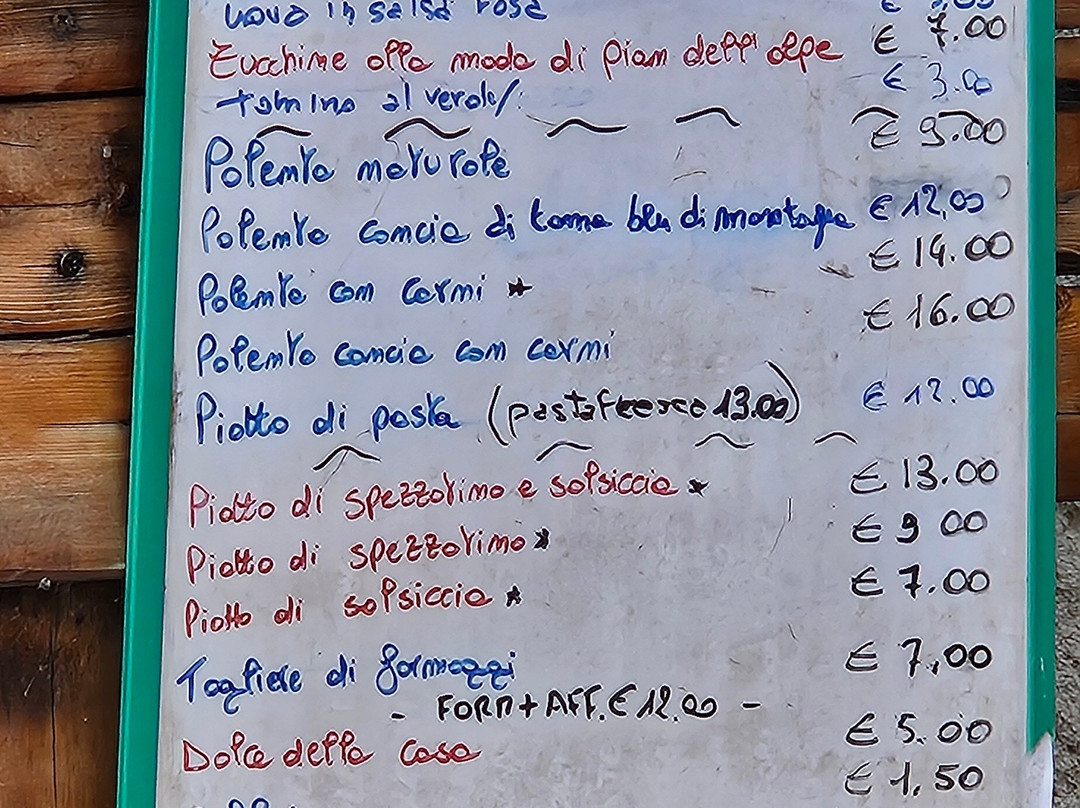 uova in salsa rosa
Zucchine alla moda di pian dell'alpe € 7.00
tomino al verde € 3.00
Polenta naturale € 9.00
Polenta concia di toma blu di montagna € 12,00
Polenta con carni * € 14.00
Polenta concia con carni € 16.00
Piatto di pasta (pasta fresca 13.00) € 12.00
Piatto di spezzatino e salsiccia * € 13.00
Piatto di spezzatino * € 9 00
Piatto di salsiccia * € 7.00
Tagliere di formaggi € 7,00
- FORM + AFF. € 12.00 -
Dolce della casa € 5.00
€ 1,50